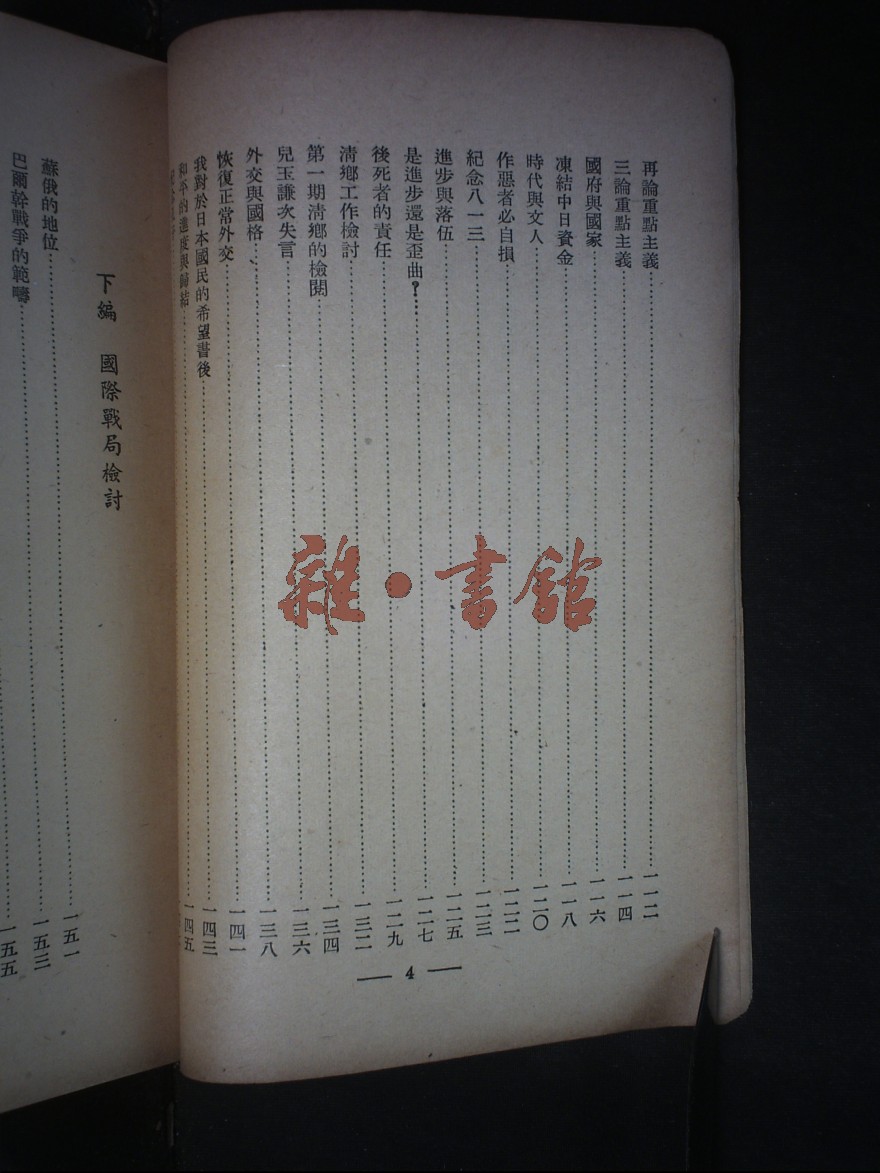 再論重點主義……一一二
三論重點主義……一一四
國府與國家……一一六
凍結中日資金……一一八
時代與文人……一二〇
作惡者必自損……一二二
紀念八一三……一二三
進步與落伍……一二五
是進步還是歪曲?……一二七
後死者的責任……一二九
清鄉工作檢討……一三二
第一期清鄉的檢閱……一三四
兒玉謙次失言……一三六
外交與國格……一三八
恢復正常外交……一四一
我對於日本國民的希望書後……一四三
和平的進度與歸結……一四五
— 4 —
下編 國際戰局檢討
蘇俄的地位……一五一
巴爾幹戰爭的範疇……一五三
一五五
雜·書館